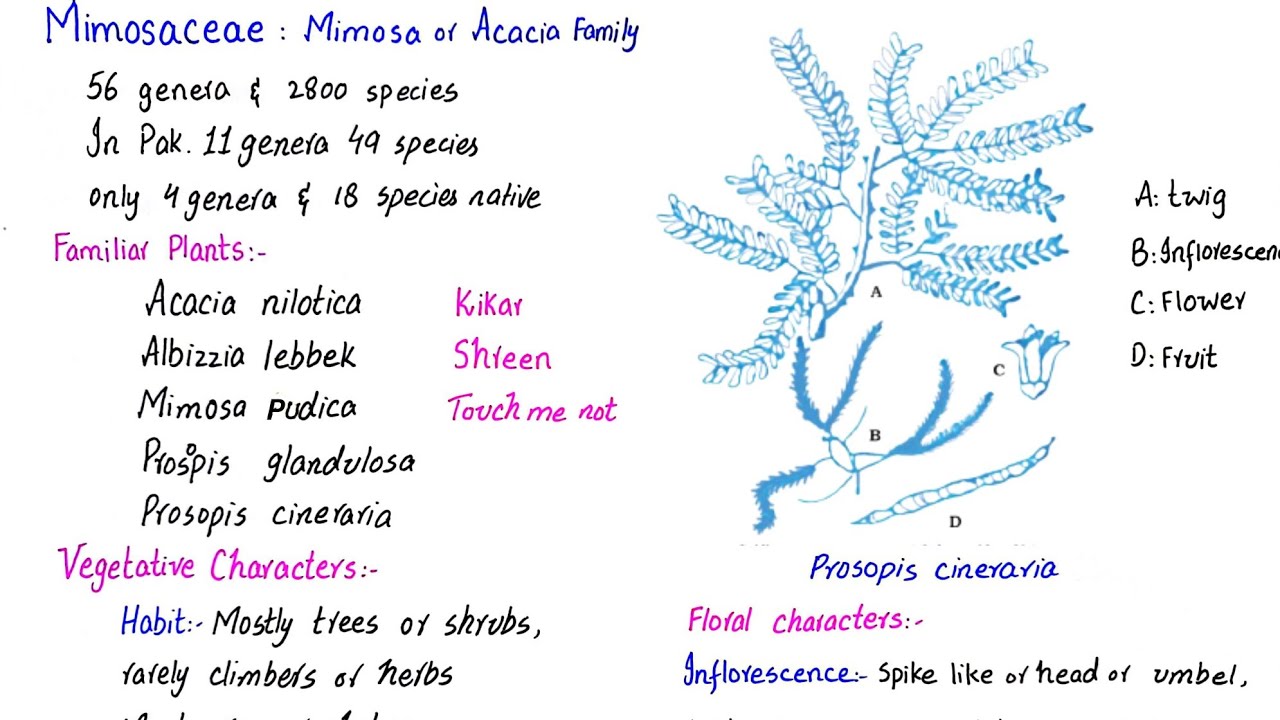 Mimosaceae : Mimosa or Acacia Family
56 genera & 2800 species
In Pak. 11 genera 49 species
only 4 genera & 18 species native
Familiar Plants:-
Acacia nilotica Kikar
Albizzia lebbek Shreen
Mimosa Pudica Touch me not
Prosopis glandulosa
Prosopis cineraria
Vegetative Characters:-
Habit:- Mostly trees or shrubs,
rarely climbers or herbs
A
B
C
D
A: twig
B: Inflorescen
C: Flower
D: Fruit
Prosopis cineraria
Floral characters:-
Inflorescence:- Spike like or head or umbel,